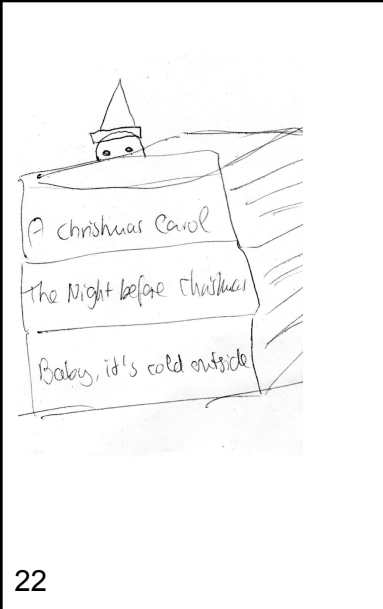 A Christmas Carol
The Night before Christmas
Baby, it's cold outside
22